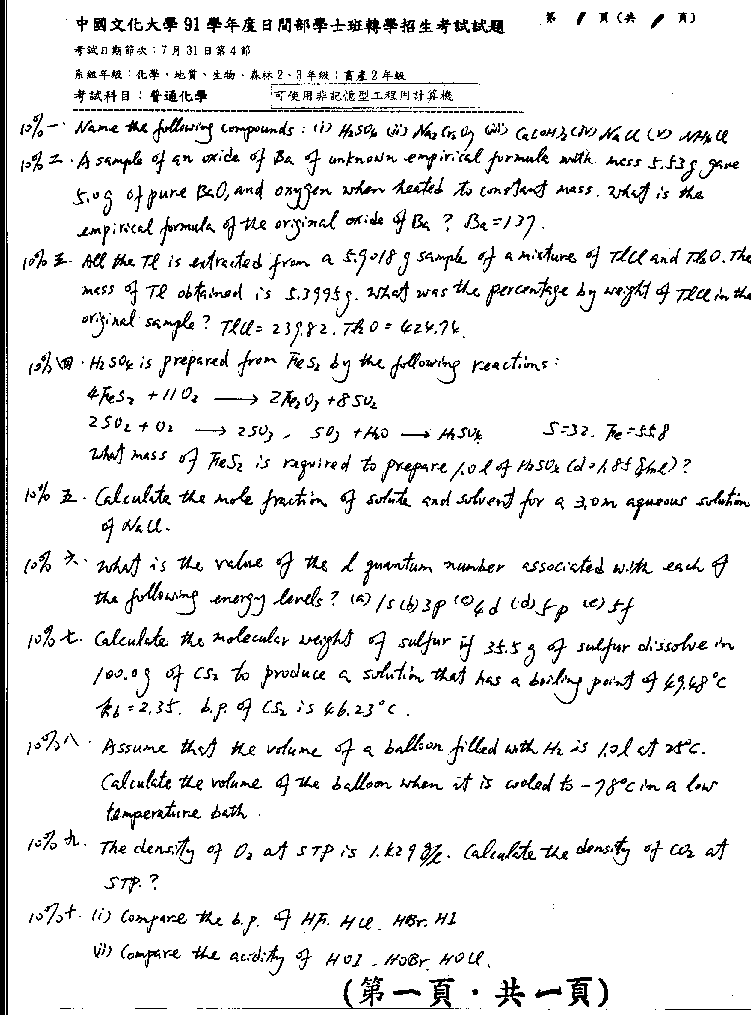 中國文化大學91學年度日間部學士班轉學招生考試試題 第 1 頁(共 1 頁)
考試日期節次:7月31日第4節
系組年級:化學、地質、生物、森林2、3年級;畜產2年級
考試科目:普通化學 可使用非記憶型工程用計算機
10% 一. Name the following compounds: (i) H₂SO₄ (ii) Na₂Cr₂O₇ (iii) Ca(OH)₂ (iv) NaCl (v) NH₄Cl
10% 二. A sample of an oxide of Ba of unknown empirical formula with mass 5.53g gave
5.0g of pure BaO, and oxygen when heated to constant mass. What is the
empirical formula of the original oxide of Ba? Ba=137.
10% 三. All the Tl is extracted from a 5.9018 g sample of a mixture of TlCl and Tl₂O. The
mass of Tl obtained is 5.3995g. What was the percentage by weight of TlCl in the
original sample? TlCl = 239.82. Tl₂O = 424.74.
10% 四. H₂SO₄ is prepared from FeS₂ by the following reactions:
4FeS₂ + 11O₂ → 2Fe₂O₃ + 8SO₂
2SO₂ + O₂ → 2SO₃, SO₃ + H₂O → H₂SO₄ S=32. Fe=55.8
What mass of FeS₂ is required to prepare 1.0 l of H₂SO₄ (d=1.85 g/ml)?
10% 五. Calculate the mole fraction of solute and solvent for a 3.0m aqueous solution
of NaCl.
10% 六. What is the value of the l quantum number associated with each of
the following energy levels? (a) 1s (b) 3p (c) 4d (d) 5p (e) 5f
10% 七. Calculate the molecular weight of sulfur if 35.5 g of sulfur dissolve in
100.0g of CS₂ to produce a solution that has a boiling point of 49.48°C
kb=2.35. b.p. of CS₂ is 46.23°C.
10% 八. Assume that the volume of a balloon filled with H₂ is 1.0 l at 25°C.
Calculate the volume of the balloon when it is cooled to -78°C in a low
temperature bath.
10% 九. The density of O₂ at STP is 1.429 g/l. Calculate the density of CO₂ at
STP.?
10% 十. (i) Compare the b.p. of HF. HCl. HBr. HI
(ii) Compare the acidity of HOI. HOBr. HOCl.
(第一頁.共一頁)